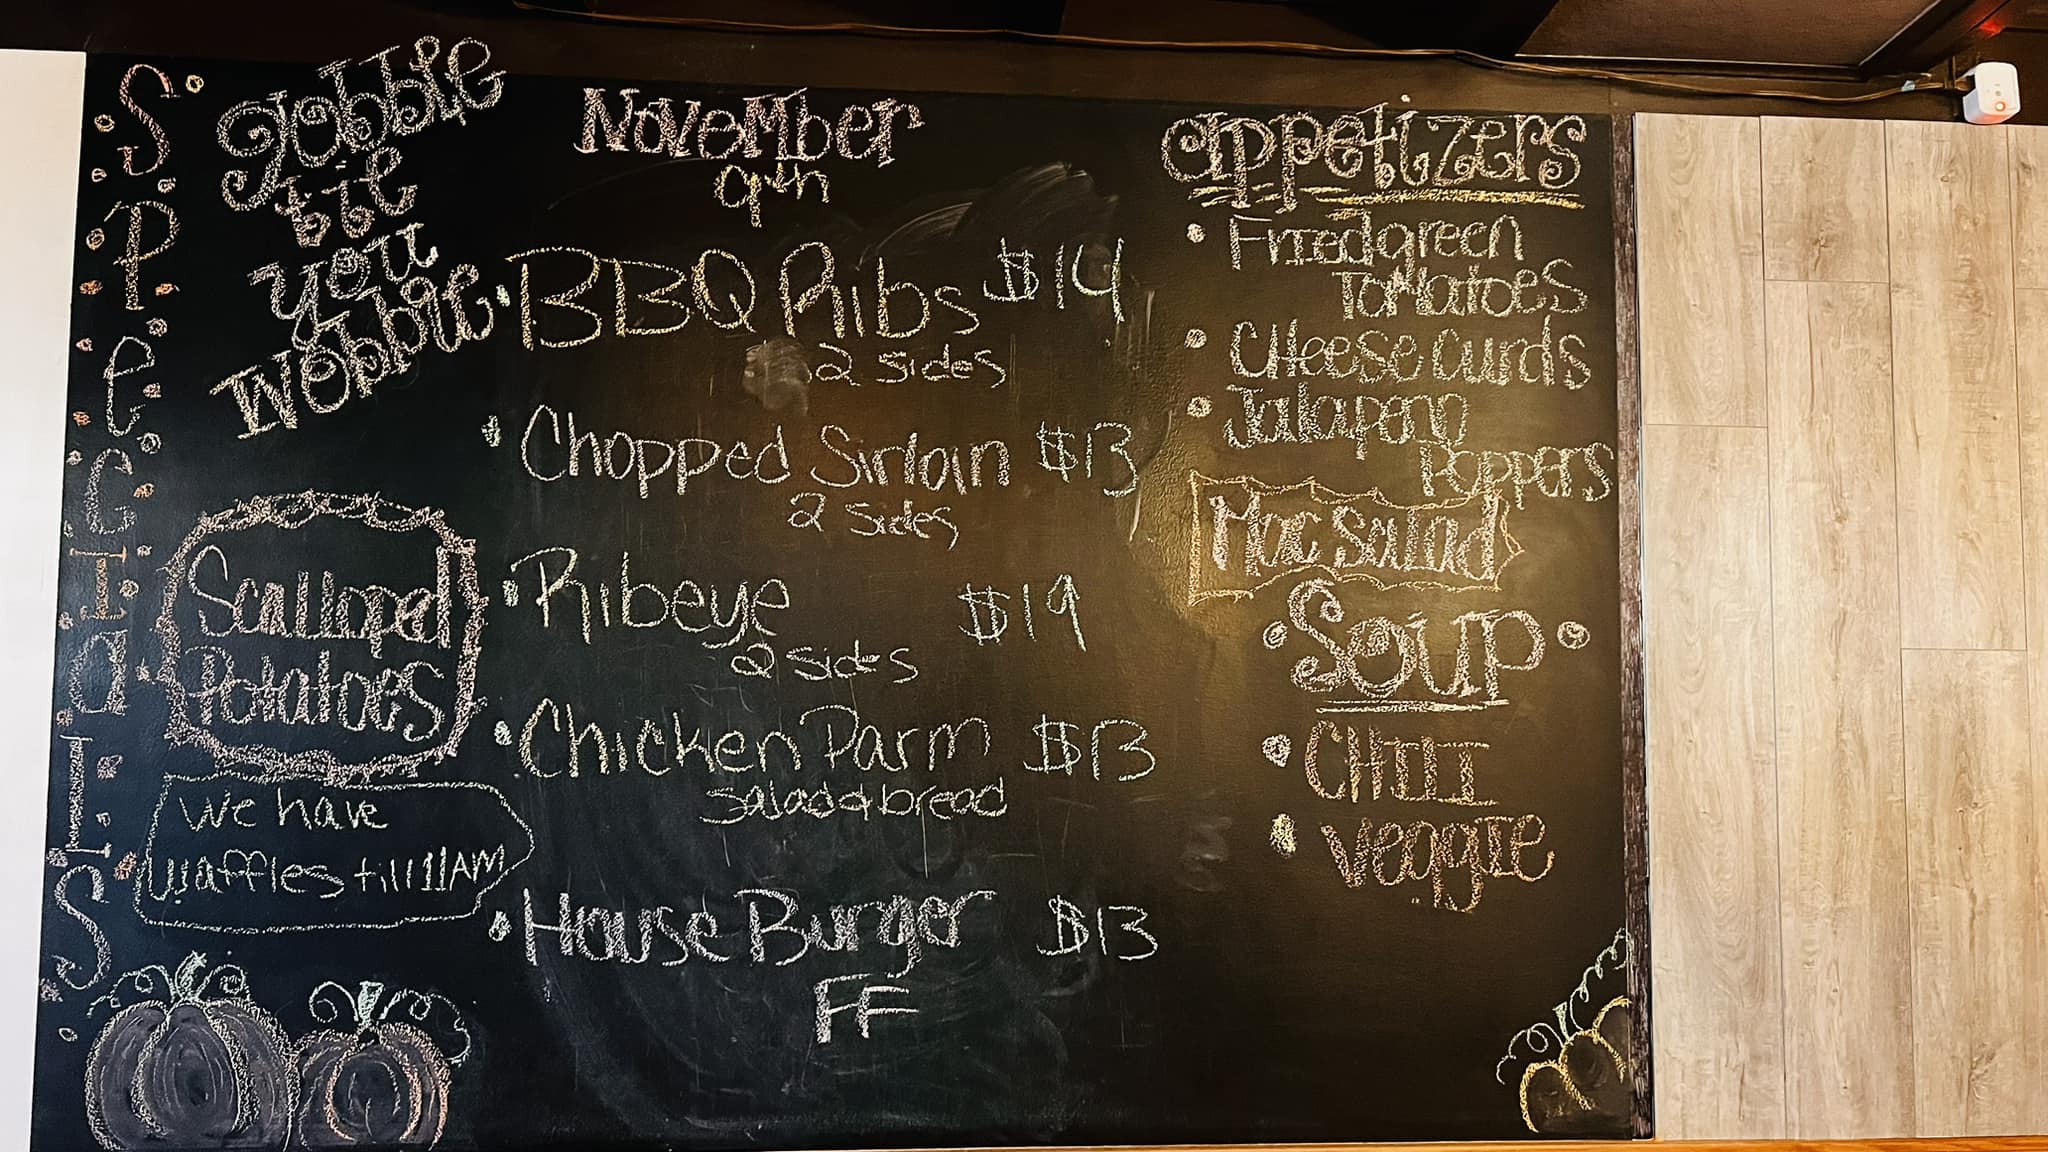 SPeCIaLS
gobble
til
you
wobble
Scalloped
Potatoes
We have
waffles till 11AM
November
9th
BBQ Ribs $14
2 sides
Chopped Sirloin $13
2 sides
Ribeye $19
2 sides
Chicken Parm $13
salad & bread
House Burger $13
FF
appetizers
Fried green
Tomatoes
Cheese Curds
Jalapeno
Poppers
Mac Salad
Soup
CHILI
veggie